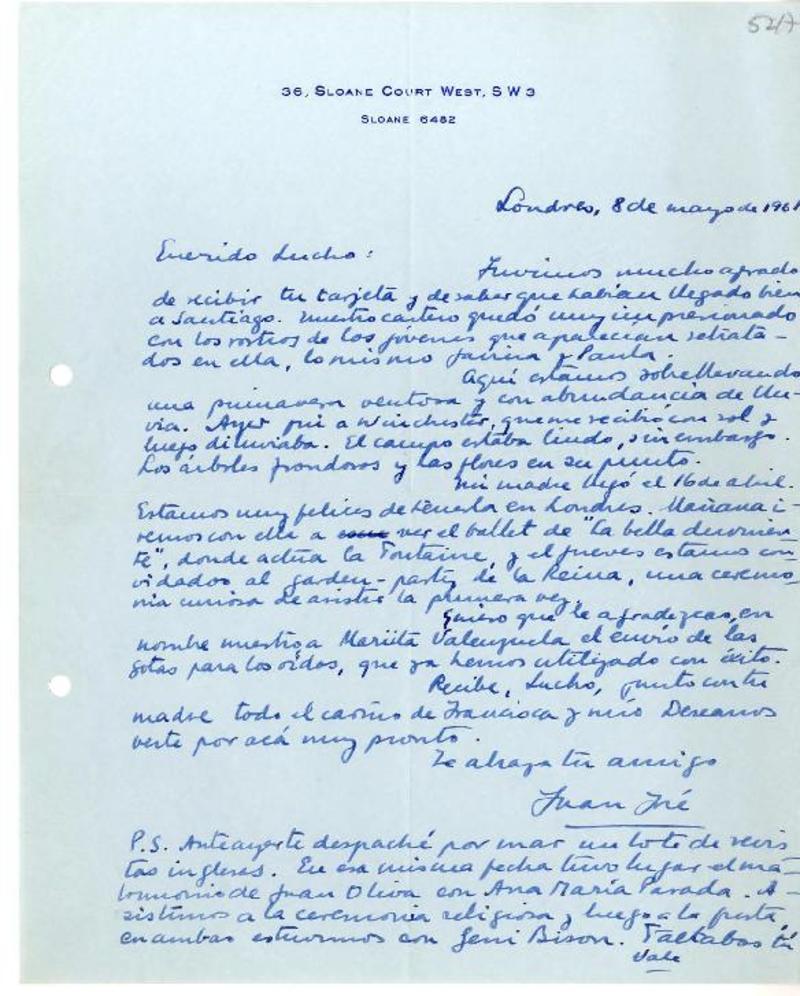 52A
36, SLOANE COURT WEST, S W 3
SLOANE 6482
Londres, 8 de mayo de 1961
Querido Lucho:
Tuvimos mucho agrado
de recibir tu tarjeta y de saber que habían llegado bien
a Santiago. Nuestro cartero quedó muy impresionado
con los rostros de los jóvenes que aparecían retrata-
dos en ella, lo mismo y Paula.
Aquí estamos sobrellevando
una primavera ventosa y con abundancia de llu-
via. Ayer fui a Winchester, que me recibió con sol y
luego diluviaba. El campo estaba lindo, sin embargo.
Los árboles frondosos y las flores en su punto.
Mi madre llegó el 16 de abril.
Estamos muy felices de tenerla en Londres. Mañana i-
remos con ella a ver el ballet de "La bella durmien-
te", donde actúa la Fontaine, y el jueves estamos con-
vidados al garden-party de la Reina, una ceremo-
nia curiosa de asistir la primera vez.
Quiero que le agradezcas, en
nombre nuestro a Mariita Valenzuela el envío de las
gotas para los oídos, que ya hemos utilizado con éxito.
Recibe, Lucho, junto con tu
madre todo el cariño de Francisca y mío. Deseamos
verte por acá muy pronto.
Te abraza tu amigo
Juan José
P.S. Anteayer te despaché por mar un lote de revis
tas inglesas. En esa misma fecha tuvo lugar el ma-
trimonio de Juan Oliva con Ana María Parada. A-
sistimos a la ceremonia religiosa y luego a la fiesta,
en ambas estuvimos con Bison. Faltabas tú
Vale